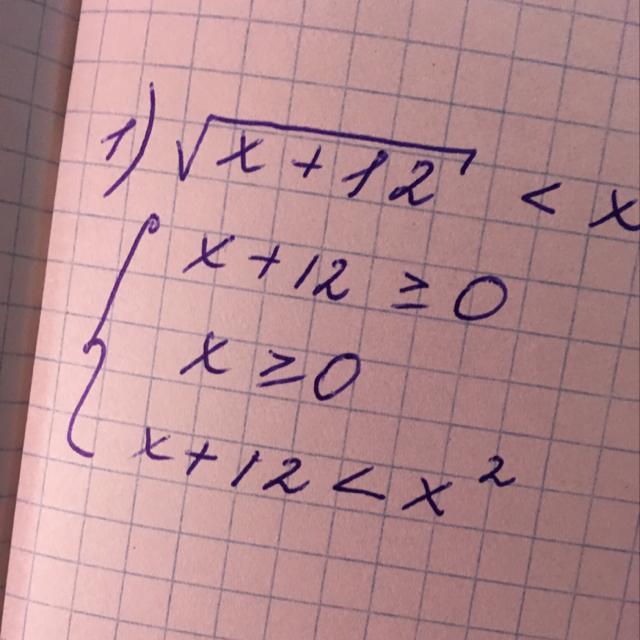 1) √x + 12 < x
x + 12 ≥ 0
x ≥ 0
x + 12 < x²